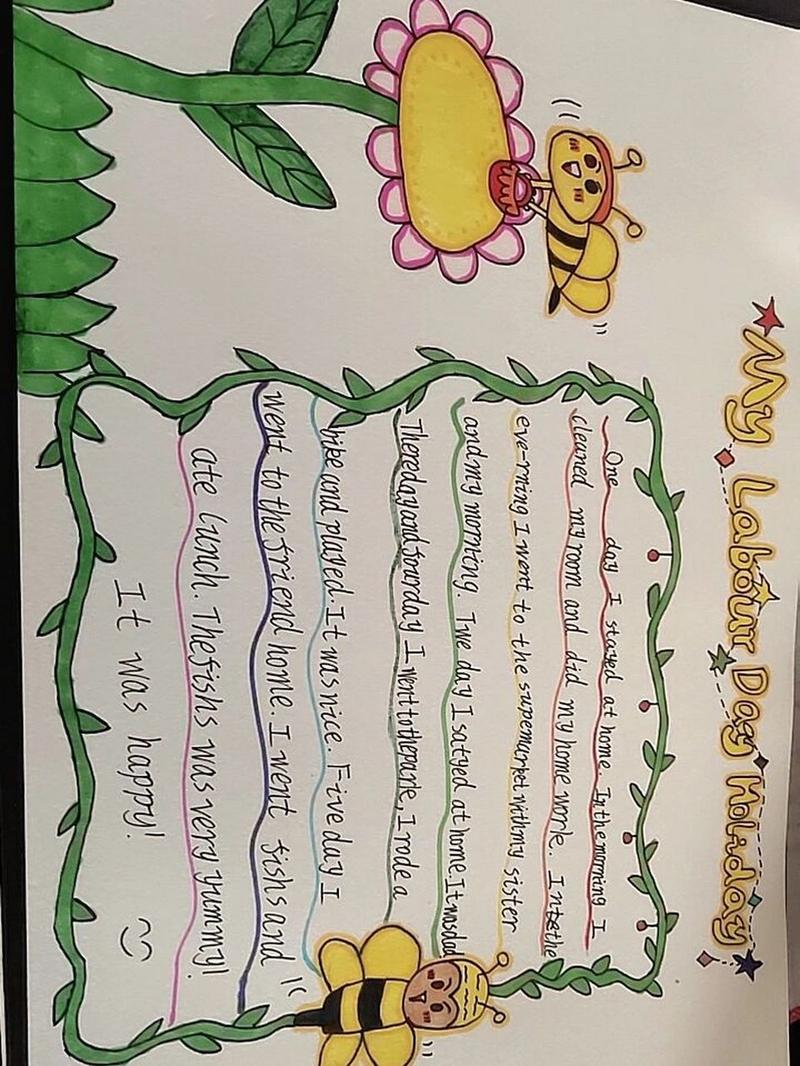 My Labour Day Holiday
One day I stayed at home. In the morning I
cleaned my room and did my home work. In the
eve-rning I went to the supemarket withmy sister
and my mornting. Twe day I satyed at home. It was
Thereday and fourday I went to the parte, I rode a
bike and played. It was nice. Five day I
went to the friend home. I went fishs and
ate lunch. The fishs was very yummy!
It was happy!